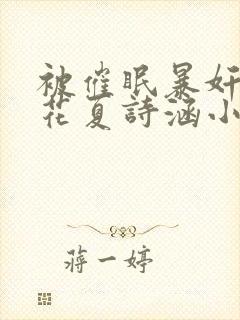 被催眠暴奸
花夏詩涵小
蔣一婷